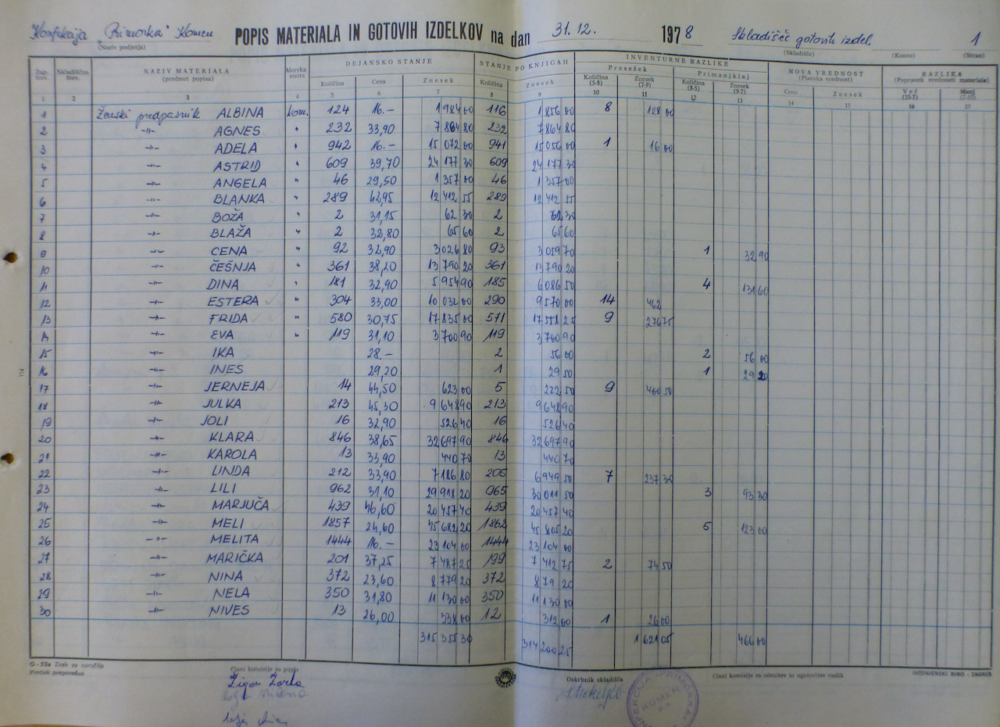 Konfekcija "Primorka" Komen POPIS MATERIALA IN GOTOVIH IZDELKOV na dan 31.12. 1978 Skladišče gotovih izdel. 1
(Naziv podjetja) (Skladišče) (Konto) (Stran)
DEJANSKO STANJE STANJE PO KNJIGAH INVENTURNE RAZLIKE NOVA VREDNOST RAZLIKA
NAZIV MATERIALA (predmet popisa) Merska enota Količina Cena Znesek Količina Znesek Presežek Primanjkljaj
1 2 3 4 5 6 7 8 9 10 11 12 13 14 15 16 17
1 Ženski predpasnik ALBINA kom. 124 16.- 1984 00 116 1856 00 8 128 00
2 -"- AGNES " 232 33,90 7864 80 232 7864 80
3 -"- ADELA " 942 16.- 15072 00 941 15056 00 1 16 00
4 -"- ASTRID " 609 39,70 24177 30 609 24177 30
5 -"- ANGELA " 46 29,50 1357 00 46 1357 00
6 -"- BLANKA " 289 42,95 12412 55 289 12412 55
7 -"- BOŽA " 2 31,15 62 30 2 62 30
8 -"- BLAŽA " 2 32,80 65 60 2 65 60
9 -"- CENA " 92 32,90 3026 80 93 3059 70 1 32 90
10 -"- ČEŠNJA " 361 38,20 13790 20 361 13790 20
11 -"- DINA " 181 32,90 5954 90 185 6086 50 4 131 60
12 -"- ESTERA " 304 33,00 10032 00 290 9570 00 14 462
13 -"- FRIDA " 580 30,75 17835 00 571 17558 25 9 276 75
14 -"- EVA " 119 31,10 3700 90 119 3700 90
15 -"- IKA 28.- 2 56 00 2 56 00
16 -"- INES 29,20 1 1 29 20
17 -"- JERNEJA 14 44,50 623 00 5 222 50 9 400 50
18 -"- JULKA 213 45,30 9648 90 213 9648 90
19 -"- JOLI 16 32,90 526 40 16 526 40
20 -"- KLARA 846 38,65 32697 90 846 32697 90
21 -"- KAROLA 13 33,90 440 70 13 440 70
22 -"- LINDA 212 33,90 7186 80 205 6949 50 7 237 30
23 -"- LILI 962 31,10 29918 20 965 30011 50 3 93 30
24 -"- MARJUČA 439 46,60 20457 40 439 20457 40
25 -"- MELI 1857 24,60 45682 20 1862 45805 20 5 123 00
26 -"- MELITA 1444 16.- 23104 00 1444 23104 00
27 -"- MARIČKA 201 37,25 7487 25 199 7412 75 2 74 50
28 -"- NINA 372 23,60 8779 20 372 879 20
29 -"- NELA 350 31,80 11130 00 350 11130 00
30 -"- NIVES 13 26,00 338 00 12 312 00 1 26 00
315 355 30 314 200 25 1621 05 466 00
Člani komisije za popis Odgovornik skladišča